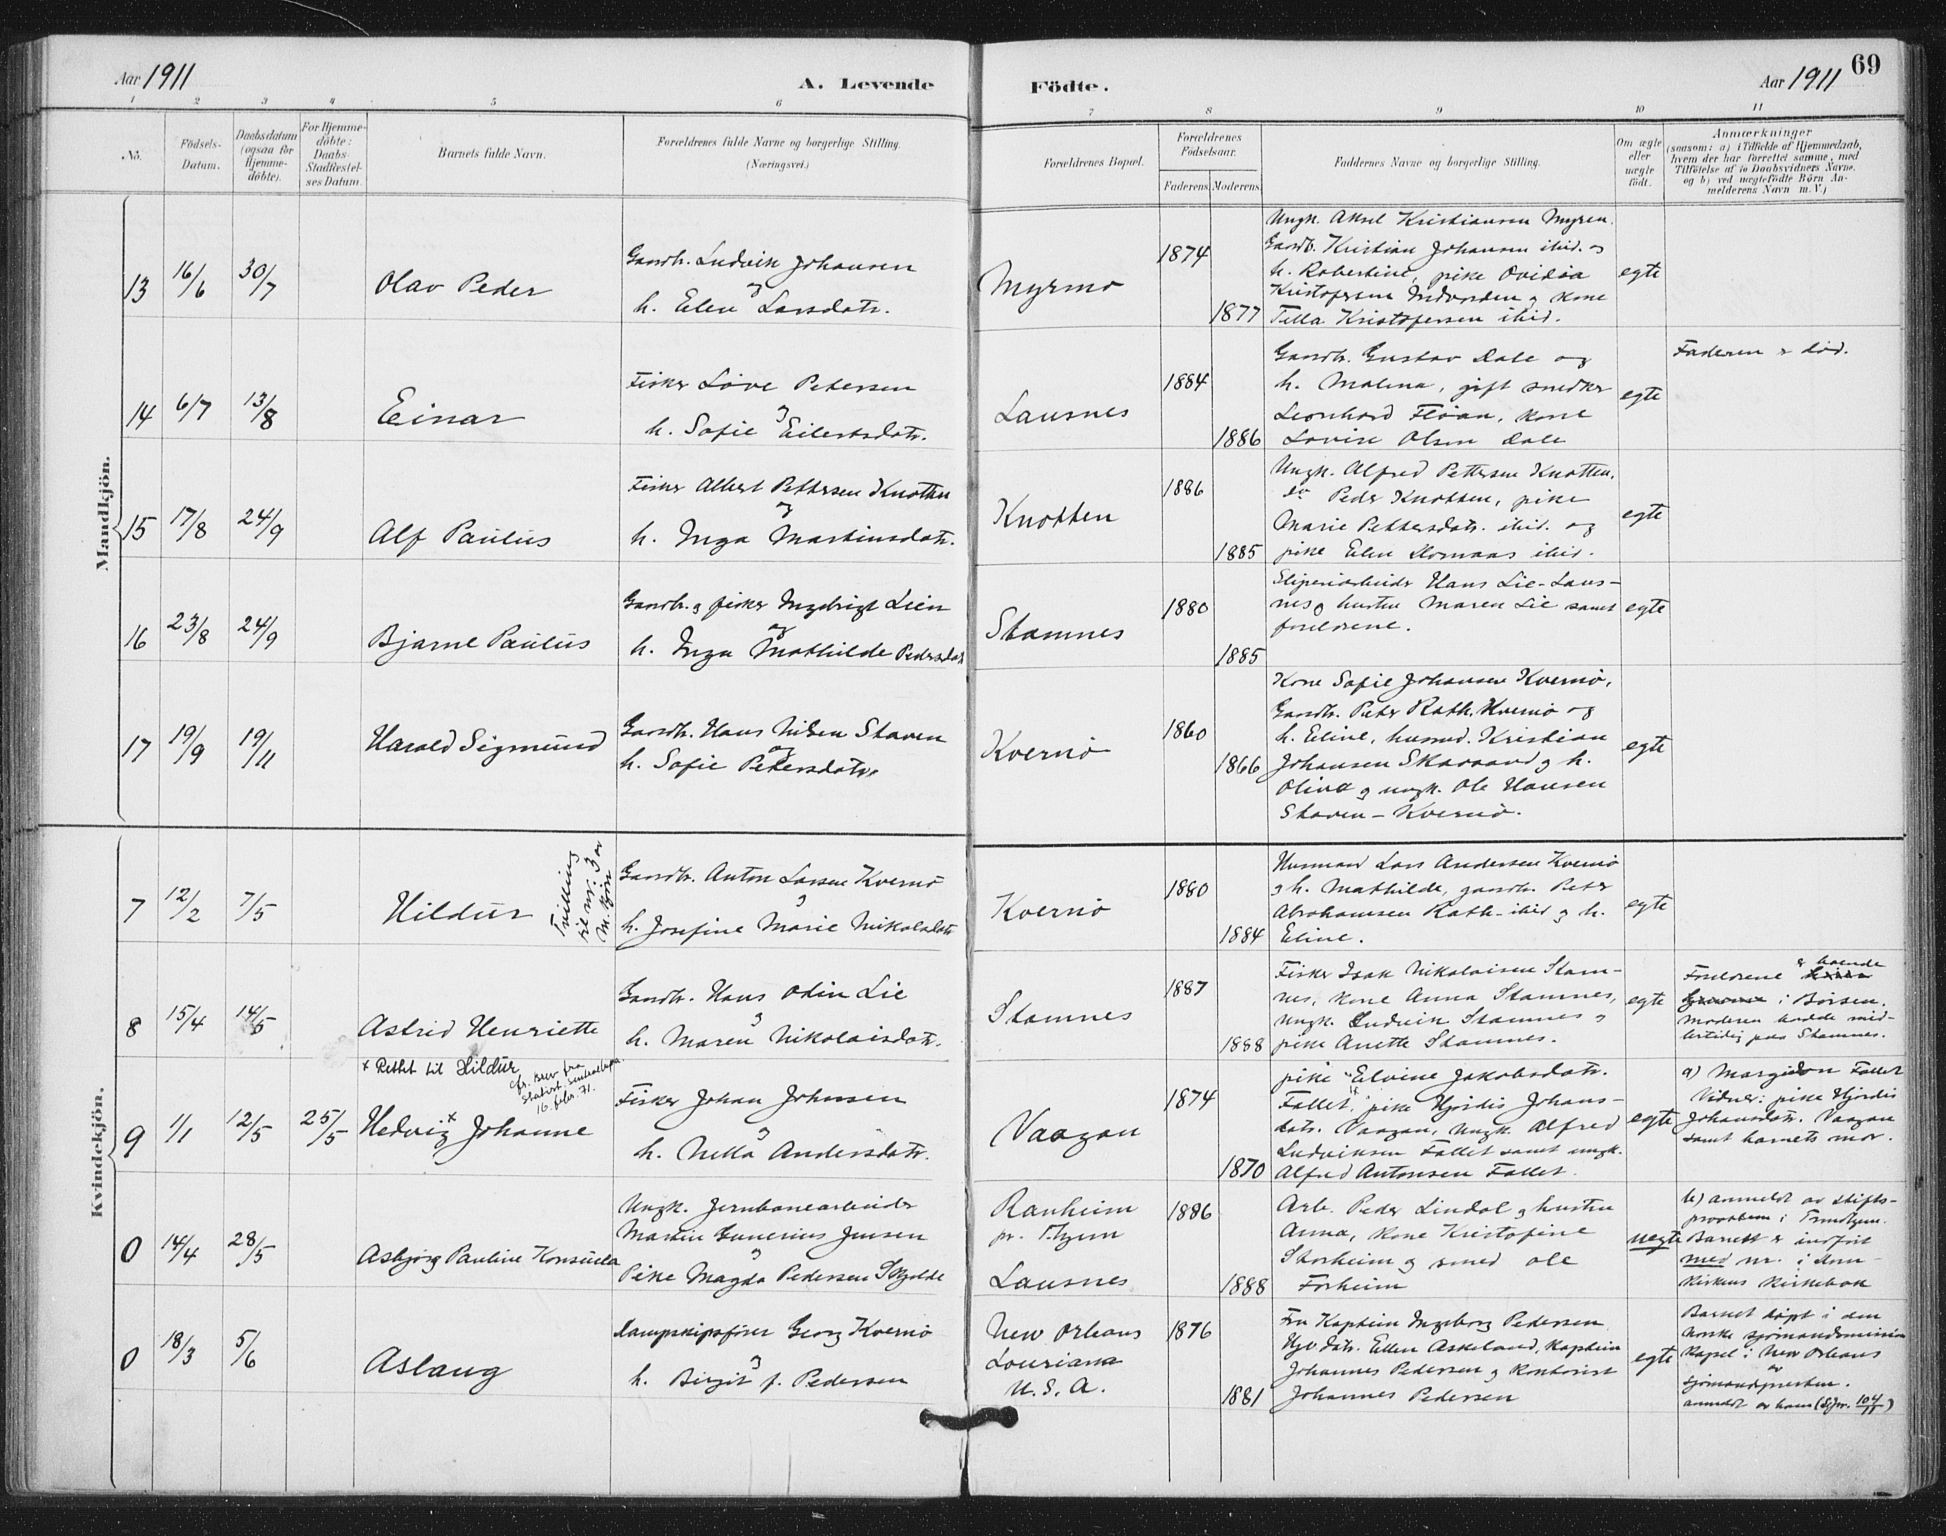 Aar 1911
A. Levende
Födte.
Aar 1911
69
1 2 3 4 5 6 7 8 9 10 11
No.
Födsels-Datum.
Daabsdatum (ogsaa för Hjemme-döbte).
For Hjemme-döbte: Daabs-Stadfæstel-ses Datum.
Barnets fulde Navn.
Forældrenes fulde Navne og borgerlige Stilling. (Næringsvei.)
Forældrenes Bopæl.
Forældrenes Födselsaar.
Faderens. Moderens.
Faddernes Navne og borgerlige Stilling.
Om ægte eller uægte födt.
Anmærkninger
(saasom: a) i Tilfælde af Hjemmedaab, hvem der har forrettet samme, med Tilföielse af to Daabsvidners Navne, og b) ved uægtefödte Börn An-melderens Navn m. V.)
Mandkjön.
13 16/6 30/7 Olav Peder
Gaardbr. Ludvik Johansen
og
h. Elen Larsdatr.
Myrmo
1874
1877
Ungk. Aksel Kristiansen Myren.
Gardb. Kristian Johansen ibid. og
h. Robertine, pike Ovidia
Kristofersen Indvorden og kone
Tella Kristofersen ibid.
egte
14 6/7 13/8 Einar
Fisker Löve Petersen
og
h. Sofie Eilertsdatr.
Lausnes
1884
1886
Gardb. Gustav Dale og
h. Malena, gift snedker
Leonhard Flöan, kone
Lovise Olsen Dale
egte
Faderen er död.
15 17/8 24/9 Alf Paulus
Fisker Albert Pettersen Knotten
og
h. Inga Martinsdatr.
Knotten
1886
1885
Ungk. Alfred Pettersen Knotten,
do Peder Knotten, pike
Marie Pettersdatr. ibid. og
pike Elen Skomaas ibid.
egte
16 23/8 24/9 Bjarne Paulus
Gardbr. og fisker Ingebrigt Lien
og
h. Inga Mathilde Pedersdatr
Stamnes
1880
1885
Sliperiarbeider Hans Lie-Laus-
nes og hustru Maren Lie samt
foreldrene.
egte
17 19/9 19/11 Harald Sigmund
Gardb. Hans Nilsen Staven
og
h. Sofie Petersdatr.
Kvernö
1860
1866
Kone Sofie Johansen Kvernö,
Gardb. Peter Rath, Kvernö og
h. Eline, husmd. Kristian
Johansen Skaraand og h.
Oliva og ungk. Ole Hansen
Staven - Kvernö.
egte
Kvindekjön.
7 12/2 7/5 Hildur
Tvilling
til nr. 3 av
M. kjön
Gardb. Anton Larsen Kvernö
og
h. Josefine Marie Nikolaidatr
Kvernö
1880
1884
Husmand Lars Andersen Kvernö
og h. Mathilde, gardb. Peter
Abrahamsen Rath - ibid og h.
Eline.
egte
8 15/4 14/5 Astrid Henriette
Gardb. Hans Odin Lie
og
h. Maren Nikolaisdatr.
Stamnes
1887
1888
Fisker Isak Nikolaisen Stam-
nes, kone Anna Stamnes,
ungk. Ludvik Stamnes og
pike Anette Stamnes.
egte
er boende
Foreldrene
i Börsen.
Moderen bodde mid-
lertidig paa Stamnes.
x Rettet til Hildur
cfr. Brev fra
Statist. Sentralbyrå
16. febr. 71.
9 1/1 12/5 25/5 Hedvig x Johanne
Fisker Johan Johnsen
og
h. Nella Andersdatr.
Vaagan
1874
1870
pike Elvine Jakobsdatr.
Fallet, pike Hjördis Johans-
datr. Vaagan, ungk. Alfred
Ludviksen Fallet samt ungk.
Alfred Antonsen Fallet.
egte
a) Margidon Fallet
Vidner: pike Hjördis
Johansdatr. Vaagan
samt barnets mor.
0 14/4 28/5 Asbjörg Pauline Konsuela
Ungk. Jernbanearbeider
Martin Gunerius Jensen
og
Pike Magda Pedersen Skjolde
Ranheim
pr. Thjem
Lausnes
1886
1888
Arb. Peder Lindal og hustru
Anna, kone Kristofine
Storheim og smed Ole
Forheim
uegte
b) anmeldt av stifts-
provsten i Trondhjem.
Barnet er indfört
med nr. i Dom-
kirkens kirkebok
0 18/3 5/6 Aslaug
Dampskipsförer Georg Kvernö
og
h. Birgit f. Pedersen
New Orleans
Louriana
U.S.A.
1876
1881
Fru Kaptein Ingeborg Pedersen
Ellen Askeland, kaptein
Johannes Pedersen og kontorist
Johannes Pedersen
egte
Barnet döpt i den
norske sjömandsmission
kapel i New Orleans
av
sjömandspresten.
anmeldt av ham (Sjr. 104/11)